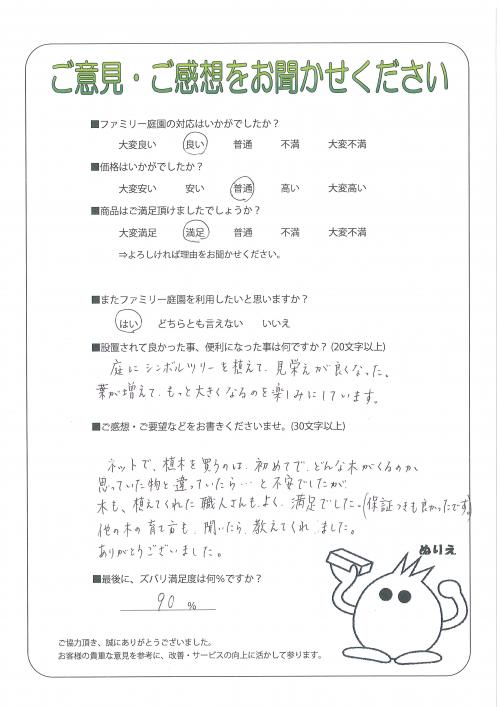 ご意見・ご感想をお聞かせください
■ファミリー庭園の対応はいかがでしたか？
大変良い 良い 普通 不満 大変不満
■価格はいかがでしたか？
大変安い 安い 普通 高い 大変高い
■商品はご満足頂けましたでしょうか？
大変満足 満足 普通 不満 大変不満
⇒よろしければ理由をお聞かせください。
■またファミリー庭園を利用したいと思いますか？
はい どちらとも言えない いいえ
■設置されて良かった事、便利になった事は何ですか？(20文字以上)
庭にシンボルツリーを植えて、見栄えが良くなった。
葉が増えて、もっと大きくなるのを楽しみにしています。
■ご感想・ご要望などをお書きくださいませ。(30文字以上)
ネットで、植木を買うのは、初めてで、どんな木がくるのか、
思っていた物と違っていたら…と不安でしたが
木も、植えてくれた職人さんも、よく、満足でした。(保証つきも良かったです)
他の木の育て方も、聞いたら、教えてくれました。
ありがとうございました。
ぬりえ
■最後に、ズバリ満足度は何%ですか？
90 %
ご協力頂き、誠にありがとうございました。
お客様の貴重な意見を参考に、改善・サービスの向上に活かして参ります。